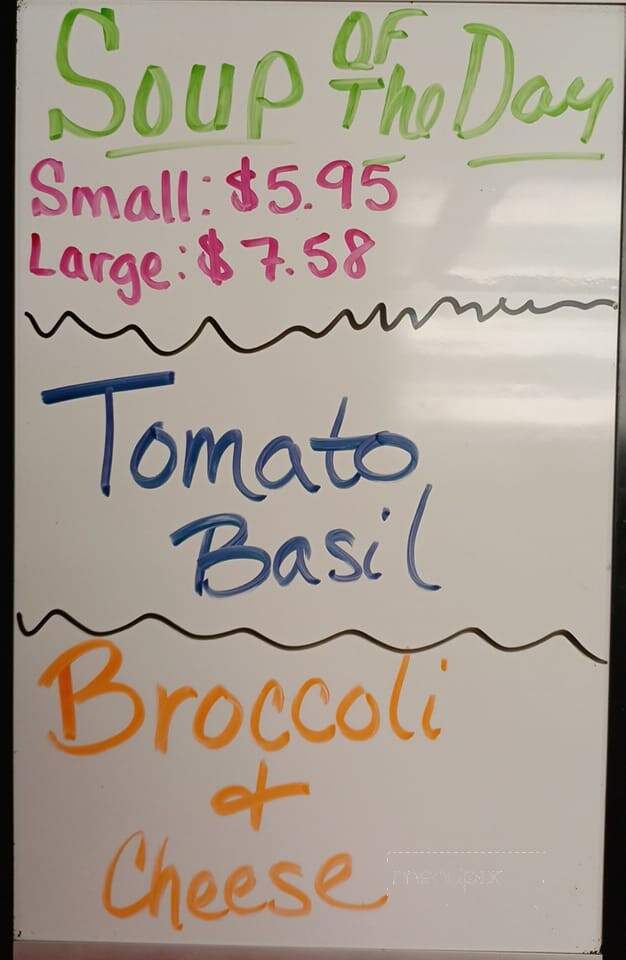 Soup OF The Day
Small: $5.95
Large: $7.58
Tomato
Basil
Broccoli
&
Cheese
menupix